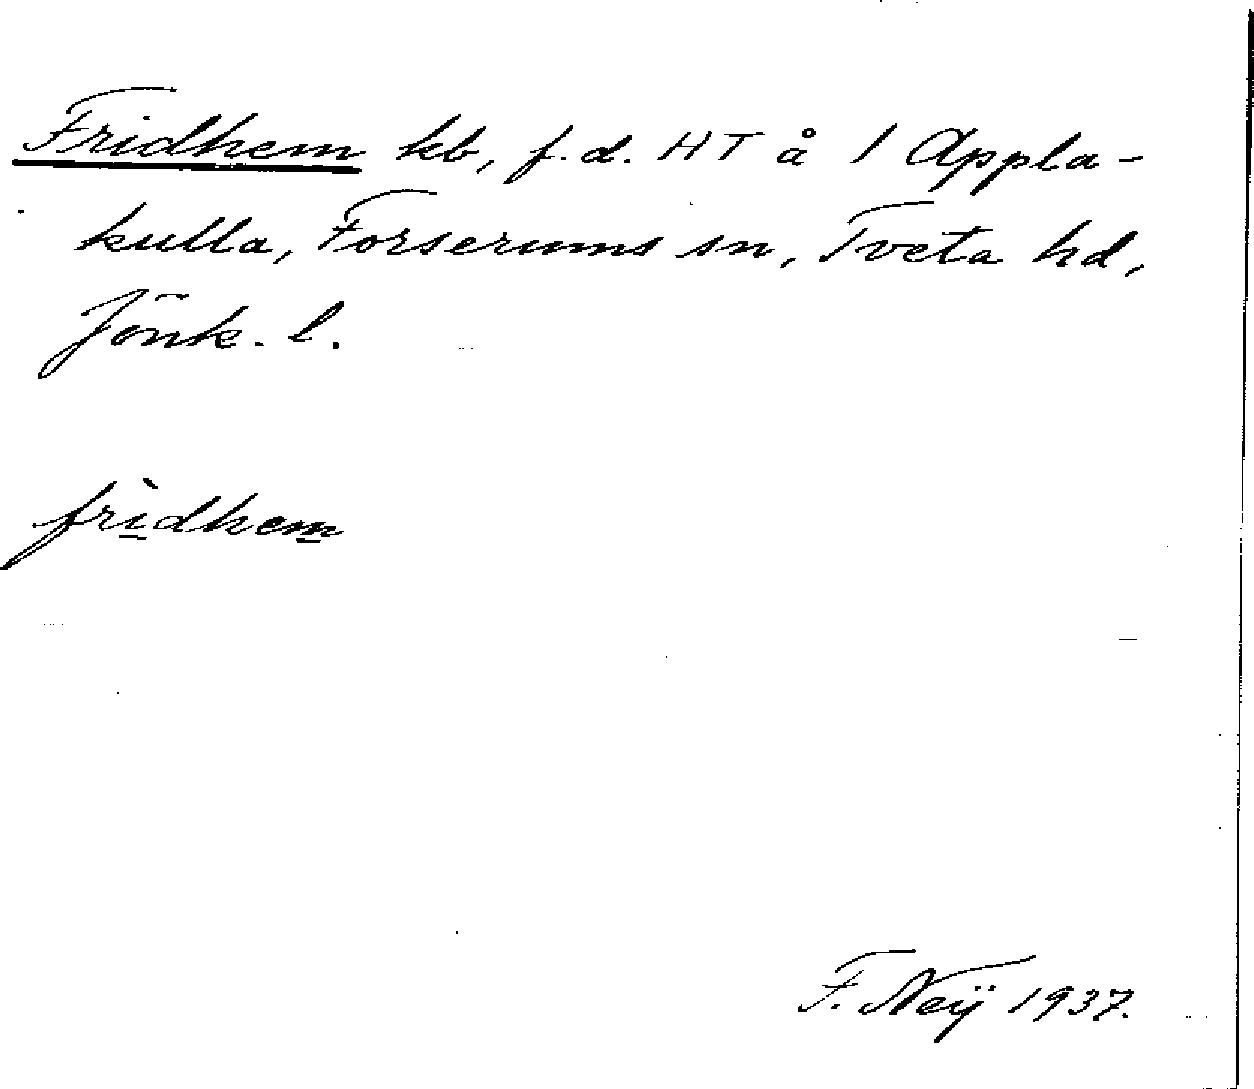 Fridhem kb, f.d. HT å 1 Appla-
kulla, Forserums sn, Tveta hd,
Jönk. l.
frìdhem
F. Neÿ 1937.